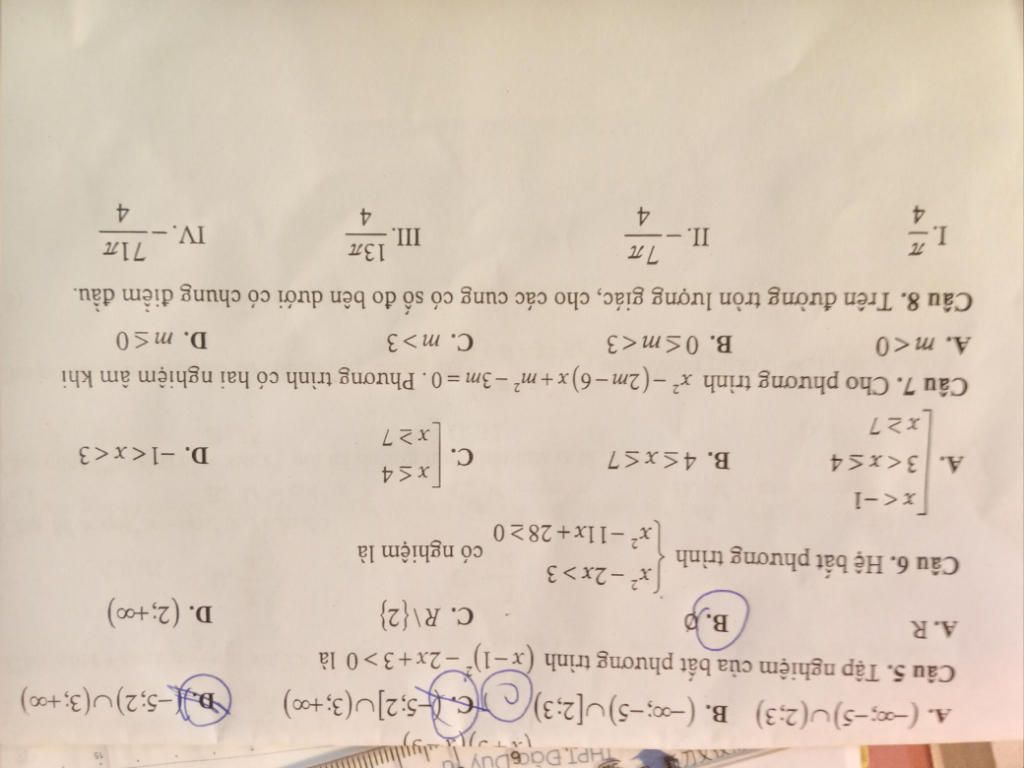 A. (−∞;−5)∪(2;3) B. (−∞;−5)∪[2;3) C C. (−5;2]∪(3;+∞) D. (−5;2)∪(3;+∞)
Câu 5. Tập nghiệm của bất phương trình (x−1)² −2x+3>0 là
A. R B. ∅ C. R\{2} D. (2;+∞)
Câu 6. Hệ bất phương trình { x² −2x>3 ; x² −11x+28≥0 có nghiệm là
A. [ x<−1 ; 3<x≤4 ; x≥7 B. 4≤x≤7 C. [ x≤4 ; x≥7 D. −1<x<3
Câu 7. Cho phương trình x² −(2m−6)x+m² −3m=0. Phương trình có hai nghiệm âm khi
A. m<0 B. 0≤m<3 C. m>3 D. m≤0
Câu 8. Trên đường tròn lượng giác, cho các cung có số đo bên dưới có chung điểm đầu.
I. π/4 II. −7π/4 III. 13π/4 IV. −71π/4